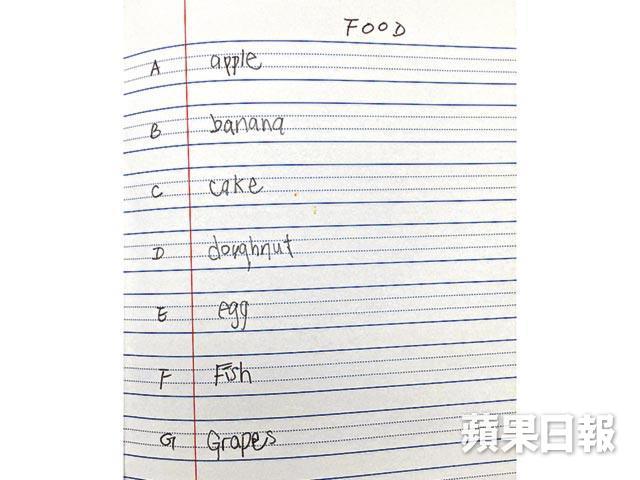 FOOD
A apple
B banana
C cake
D doughnut
E egg
F Fish
G Grapes
蘋果日報